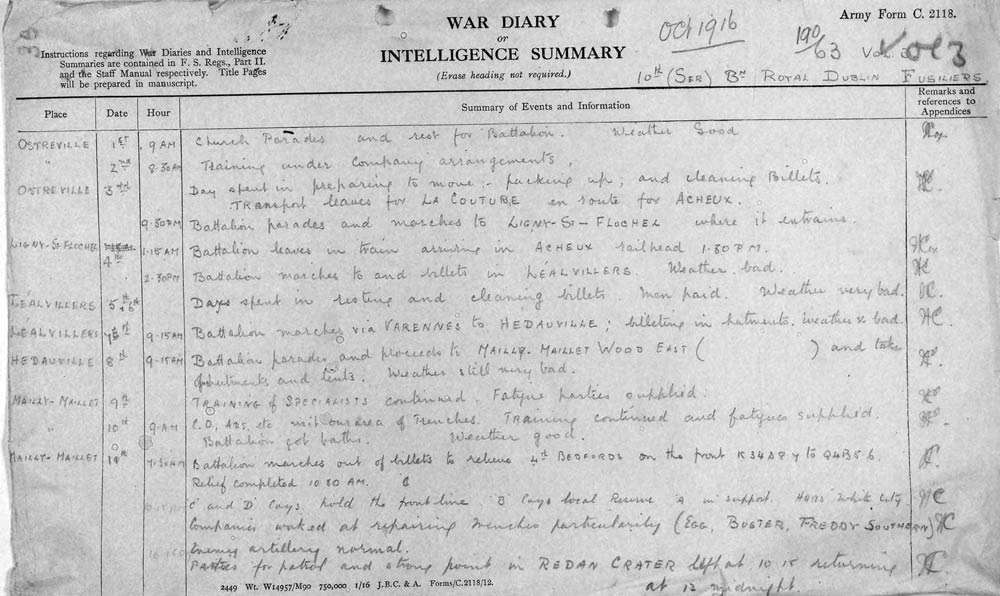 WAR DIARY
or
INTELLIGENCE SUMMARY
(Erase heading not required.)
Instructions regarding War Diaries and Intelligence
Summaries are contained in F. S. Regs., Part II.
and the Staff Manual respectively. Title Pages
will be prepared in manuscript.
Oct 1916
190/63
Vol 3
Army Form C. 2118.
10th (SER) Bn ROYAL DUBLIN FUSILIERS
Place Date Hour Summary of Events and Information Remarks and references to Appendices
OSTREVILLE 1st 9 AM Church Parades and rest for Battalion. Weather Good
" 2nd 8.30AM Training under Company arrangements,
OSTREVILLE 3rd Day spent in preparing to move:- packing up, and cleaning Billets.
TRANSPORT leaves for LA COUTURE en route for ACHEUX.
9.30PM Battalion parades and marches to LIGNY-ST-FLOCHEL where it entrains.
LIGNY-ST FLOCHEL 4th 1.15AM Battalion leaves in train arriving in ACHEUX railhead 1.30 PM.
2.30PM Battalion marches to and billets in LÉALVILLERS. Weather bad.
LÉALVILLERS 5th + 6th Days spent in resting and cleaning billets. Men paid. Weather very bad.
LÉALVILLERS 7th 9.15AM Battalion marches via VARENNES to HEDAUVILLE; billeting in hutments. Weather v. bad.
HEDAUVILLE 8th 9.15AM Battalion parades and proceeds to MAILLY-MAILLET WOOD EAST ( ) and take
and tents. Weather still very bad.
MAILLY-MAILLET 9th TRAINING of SPECIALISTS continued. Fatigue parties supplied.
" 10th 9 AM C.O, Adj, etc visit our area of Trenches. Training continued and fatigues supplied.
Battalion got baths. Weather good.
MAILLY-MAILLET 7.30AM Battalion marches out of billets to relieve 4th BEDFORDS on the front K34D8.4 to Q4B5.6.
Relief completed 10 30 AM.
'C' and 'D' Coys. hold the front line 'B' Coys local Reserve 'A' in support. HQRS White City
Companies worked at repairing trenches particularity (EGG, BUSTER, FREDDY SOUTHERN)
Enemy artillery normal.
Parties for patrol and strong point in REDAN CRATER left at 10 15 returning
at 12 midnight.
2449 Wt. W14957/M90 750,000 1/16 J.B.C. & A. Forms/C.2118/12.